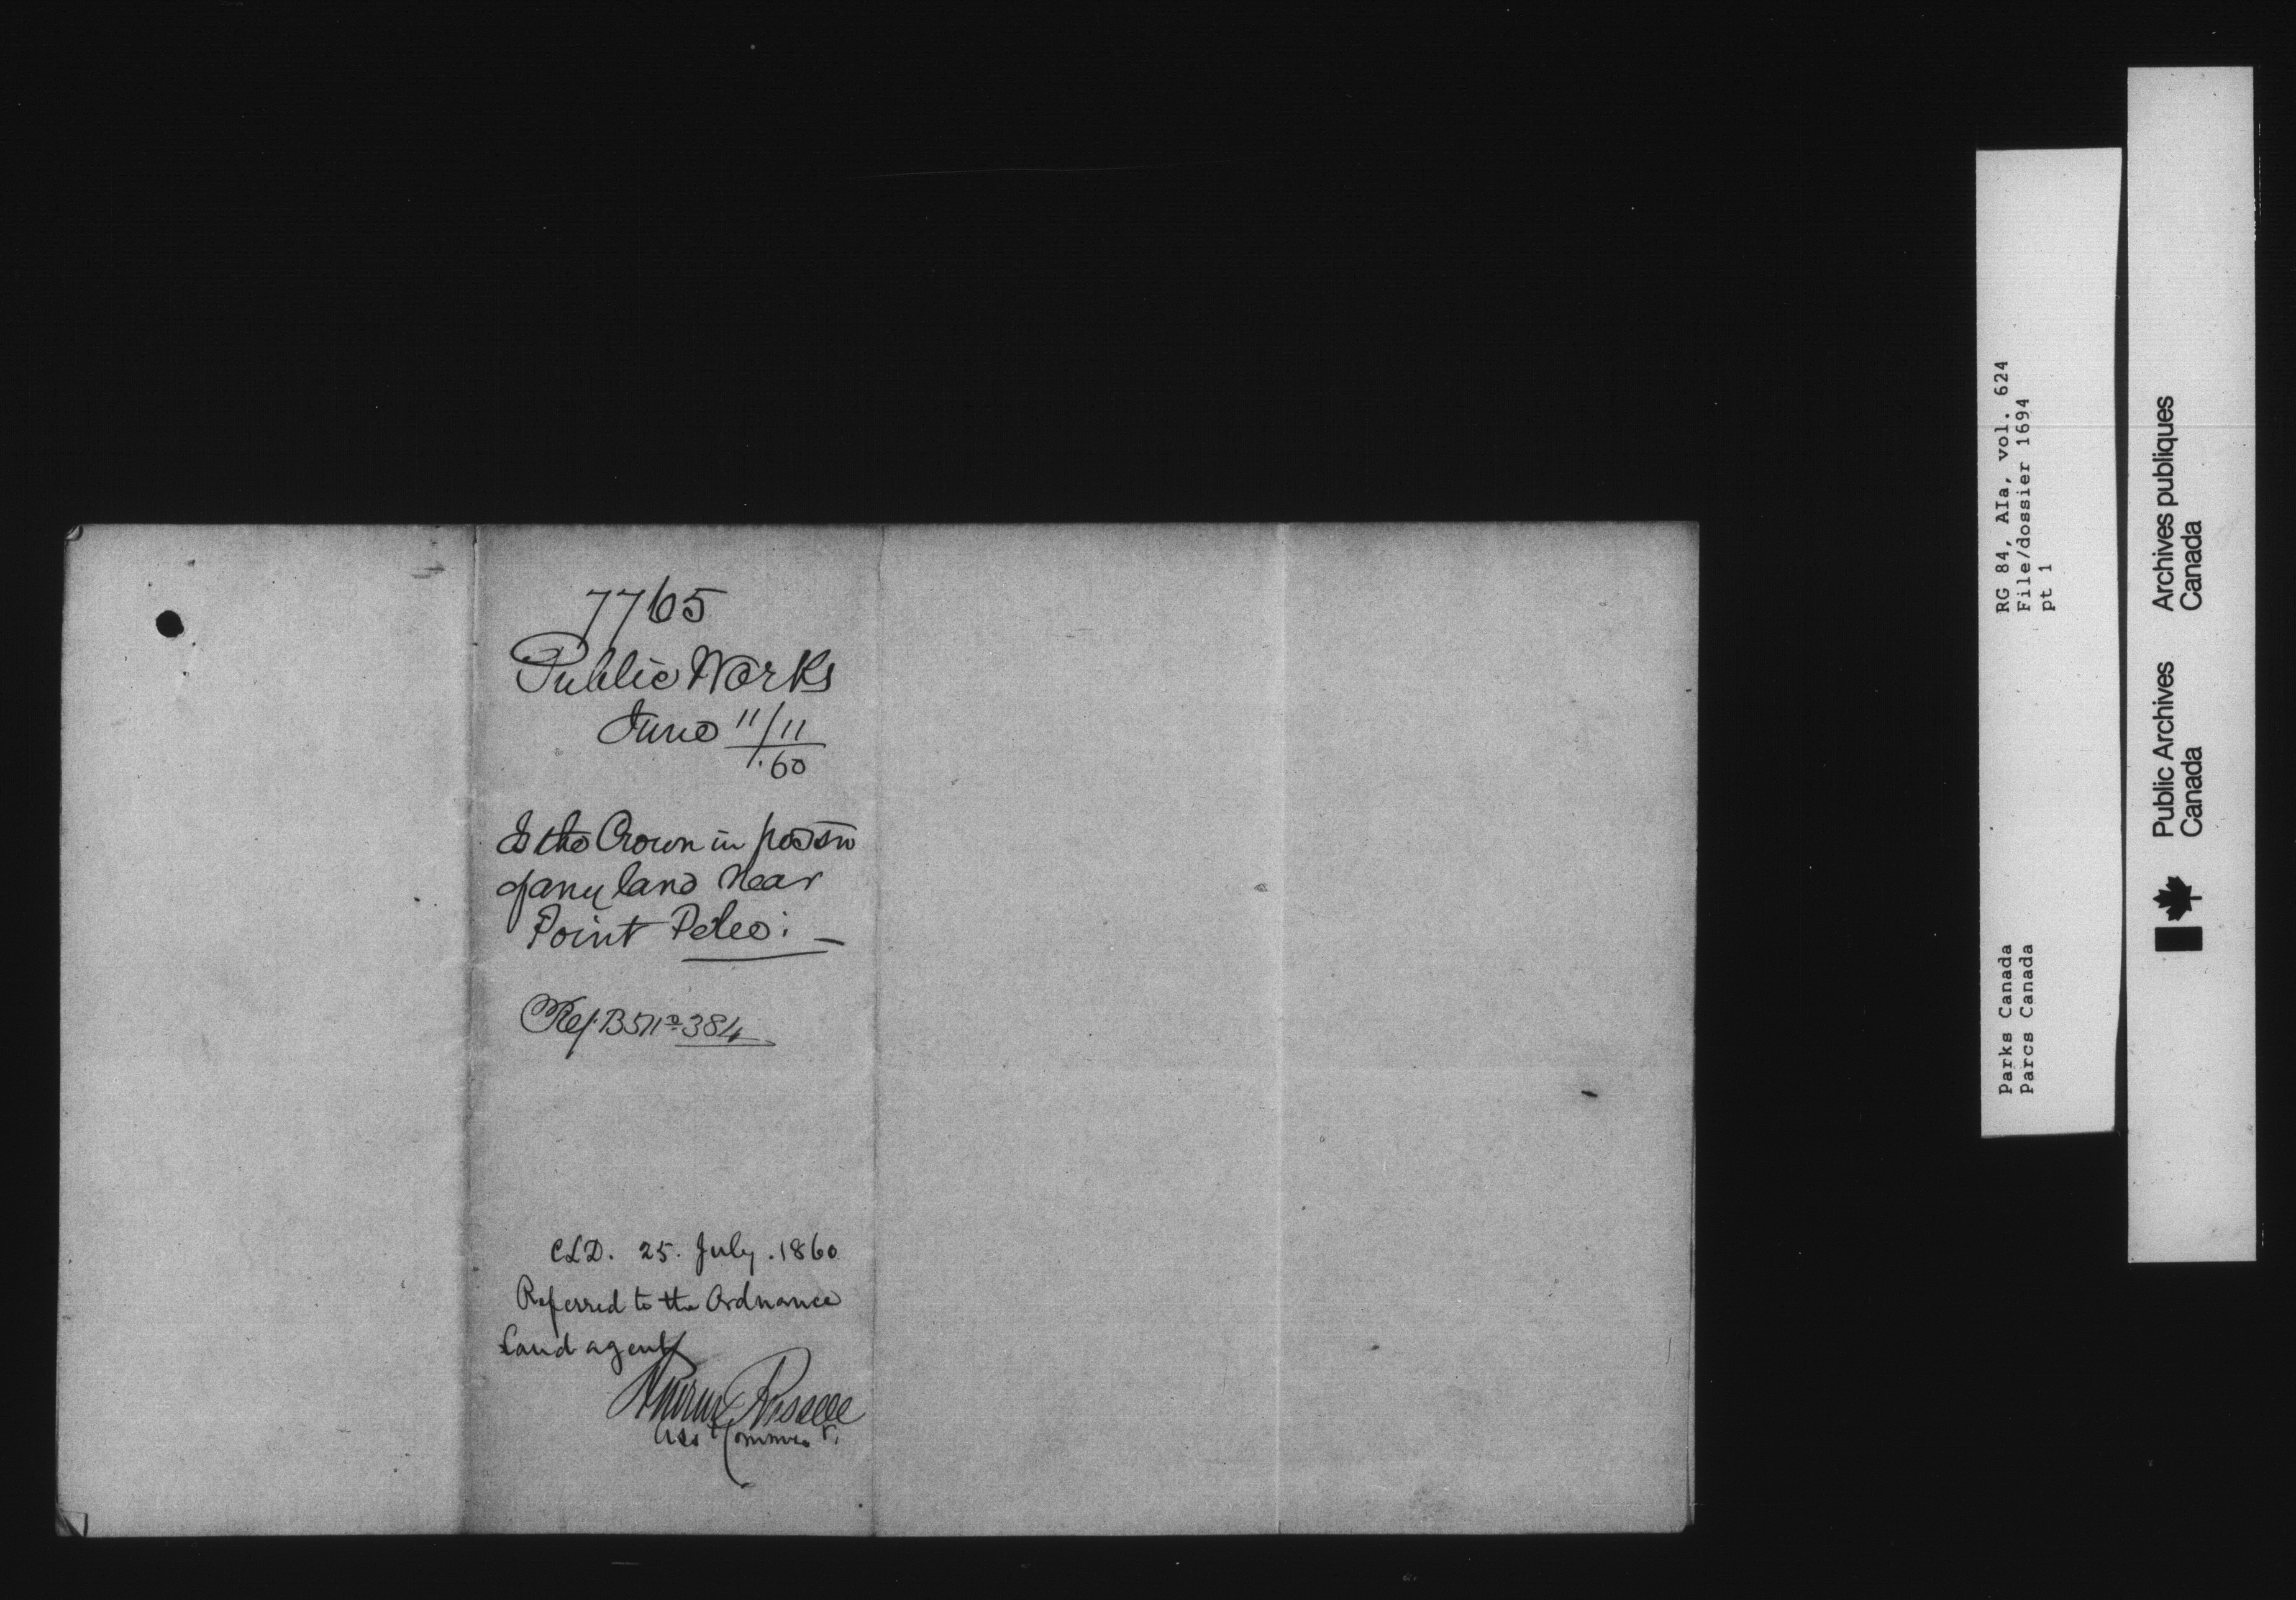 7765
Public Works
June 11/11
60
Is the Crown in possn
of any land near
Point Pelee: —
Ref. B 5 No 384
CLD. 25. July. 1860
Referred to the Ordnance
Land agent
Andrew Russell
Asst Commr.
RG 84, AIa, vol. 624
File/dossier 1694
pt 1
Parks Canada
Parcs Canada
Public Archives
Canada
Archives publiques
Canada